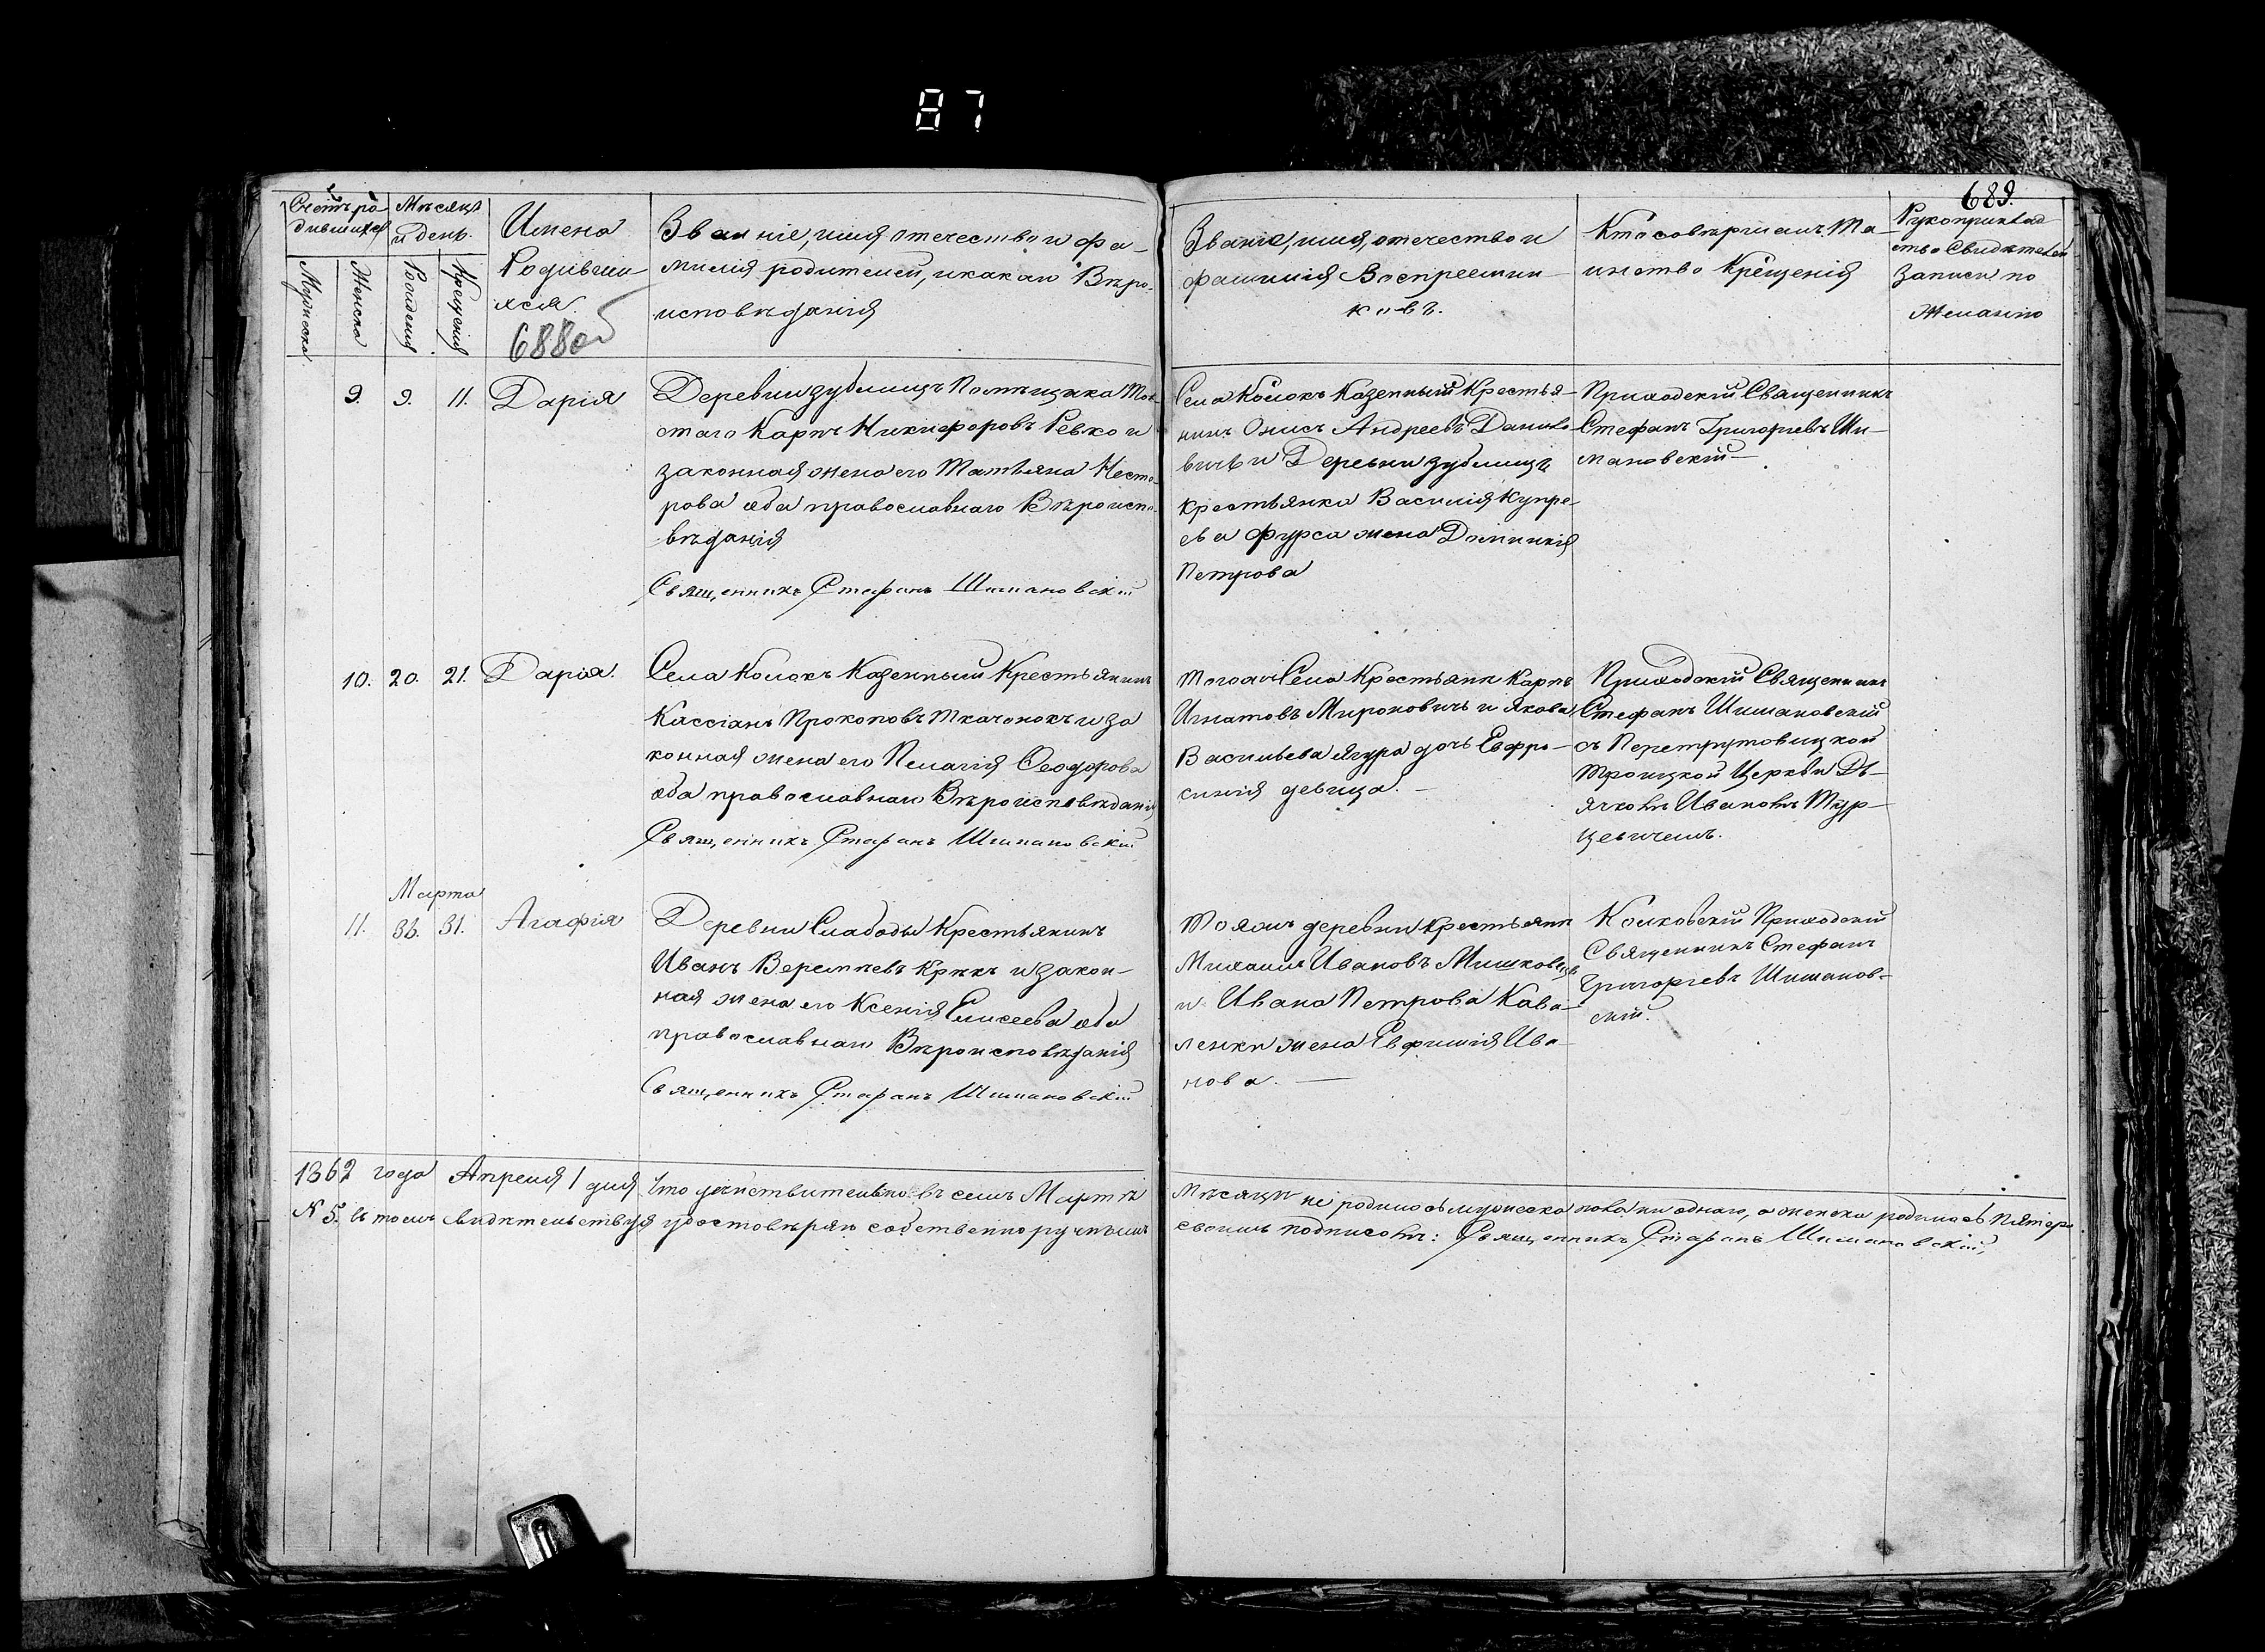 87
689.
Счетъ ро-
дившихся
Мѣсяцъ
и день.
Мужеска
Женска
Рожденія
Крещенія
Имена
Родивши-
хся.
688об
Званіе, имя отечество и фа-
милія родителей, и какаи Вѣро-
исповѣданія
Званіе, имя, отечество и
фамилія Воспреемни-
ковъ.
Кто совершилъ Та-
инство Крещенія
Рукоприклад
ство Свидѣтелей
Записи по
Желанію
9. 9. 11. Дарія
Деревни Зубмицъ Помѣщика Тол-
стаго Карпъ Никифоровъ Ревко и
законная жена его Татьяна Несте-
рова оба православнаго Вѣроиспо-
вѣданія
Священникъ Стефанъ Шимановскій
Села Колокъ Казенный Крестья-
нинъ Онисъ Андреевъ Данило-
вичъ и Деревни Зубмицъ
крестьянка Василія Купре-
ева Фурса жена Доминикія
Петрова
Приходскій Священникъ
Стефанъ Григорьевъ Ши-
мановскій
10. 20. 21. Дарія.
Села Колокъ Казенный Крестьянинъ
Кассіанъ Прокоповъ Ткачонокъ и за
конная жена его Пелагія Ѳеодорова
оба православнаго Вѣроисповѣданія
Священникъ Стефанъ Шимановскій
Тогожъ Села Крестьянин Карпъ
Игнатовъ Мироновичъ и Якова
Васильева Ягура дочь Евфро-
синія девица.
Приходскій Священникъ
Стефанъ Шимановскій
съ Перетрутовицкой
Троицкой Церкви Дь-
ячкомъ Иваномъ Тур-
цевичемъ.
Марта
11. 30. 31. Агафія
Деревни Слабоды Крестьянинъ
Иванъ Веремѣевъ Крикъ и закон-
ная жена его Ксенія Елисеева оба
православнаго Вѣроисповѣданія
Священникъ Стефанъ Шимановскій
Тояжъ деревни Крестьянин
Михаилъ Ивановъ Мишковецъ
и Ивана Петрова Кова-
ленки жена Евфимія Ива-
нова.
Колковскій Приходскій
Священникъ Стефанъ
Григорьевъ Шиманов-
скій.
1862 года Апреля 1 дня Что дѣйствительно въ семъ Мартѣ мѣсяцѣ не родилось мужеска пола ни однаго, а женска родилось пятеро
№ 5. въ томъ свидѣтельствуя удостовѣряю собственноручнымъ своимъ подписомъ: Священникъ Стефанъ Шимановскій,